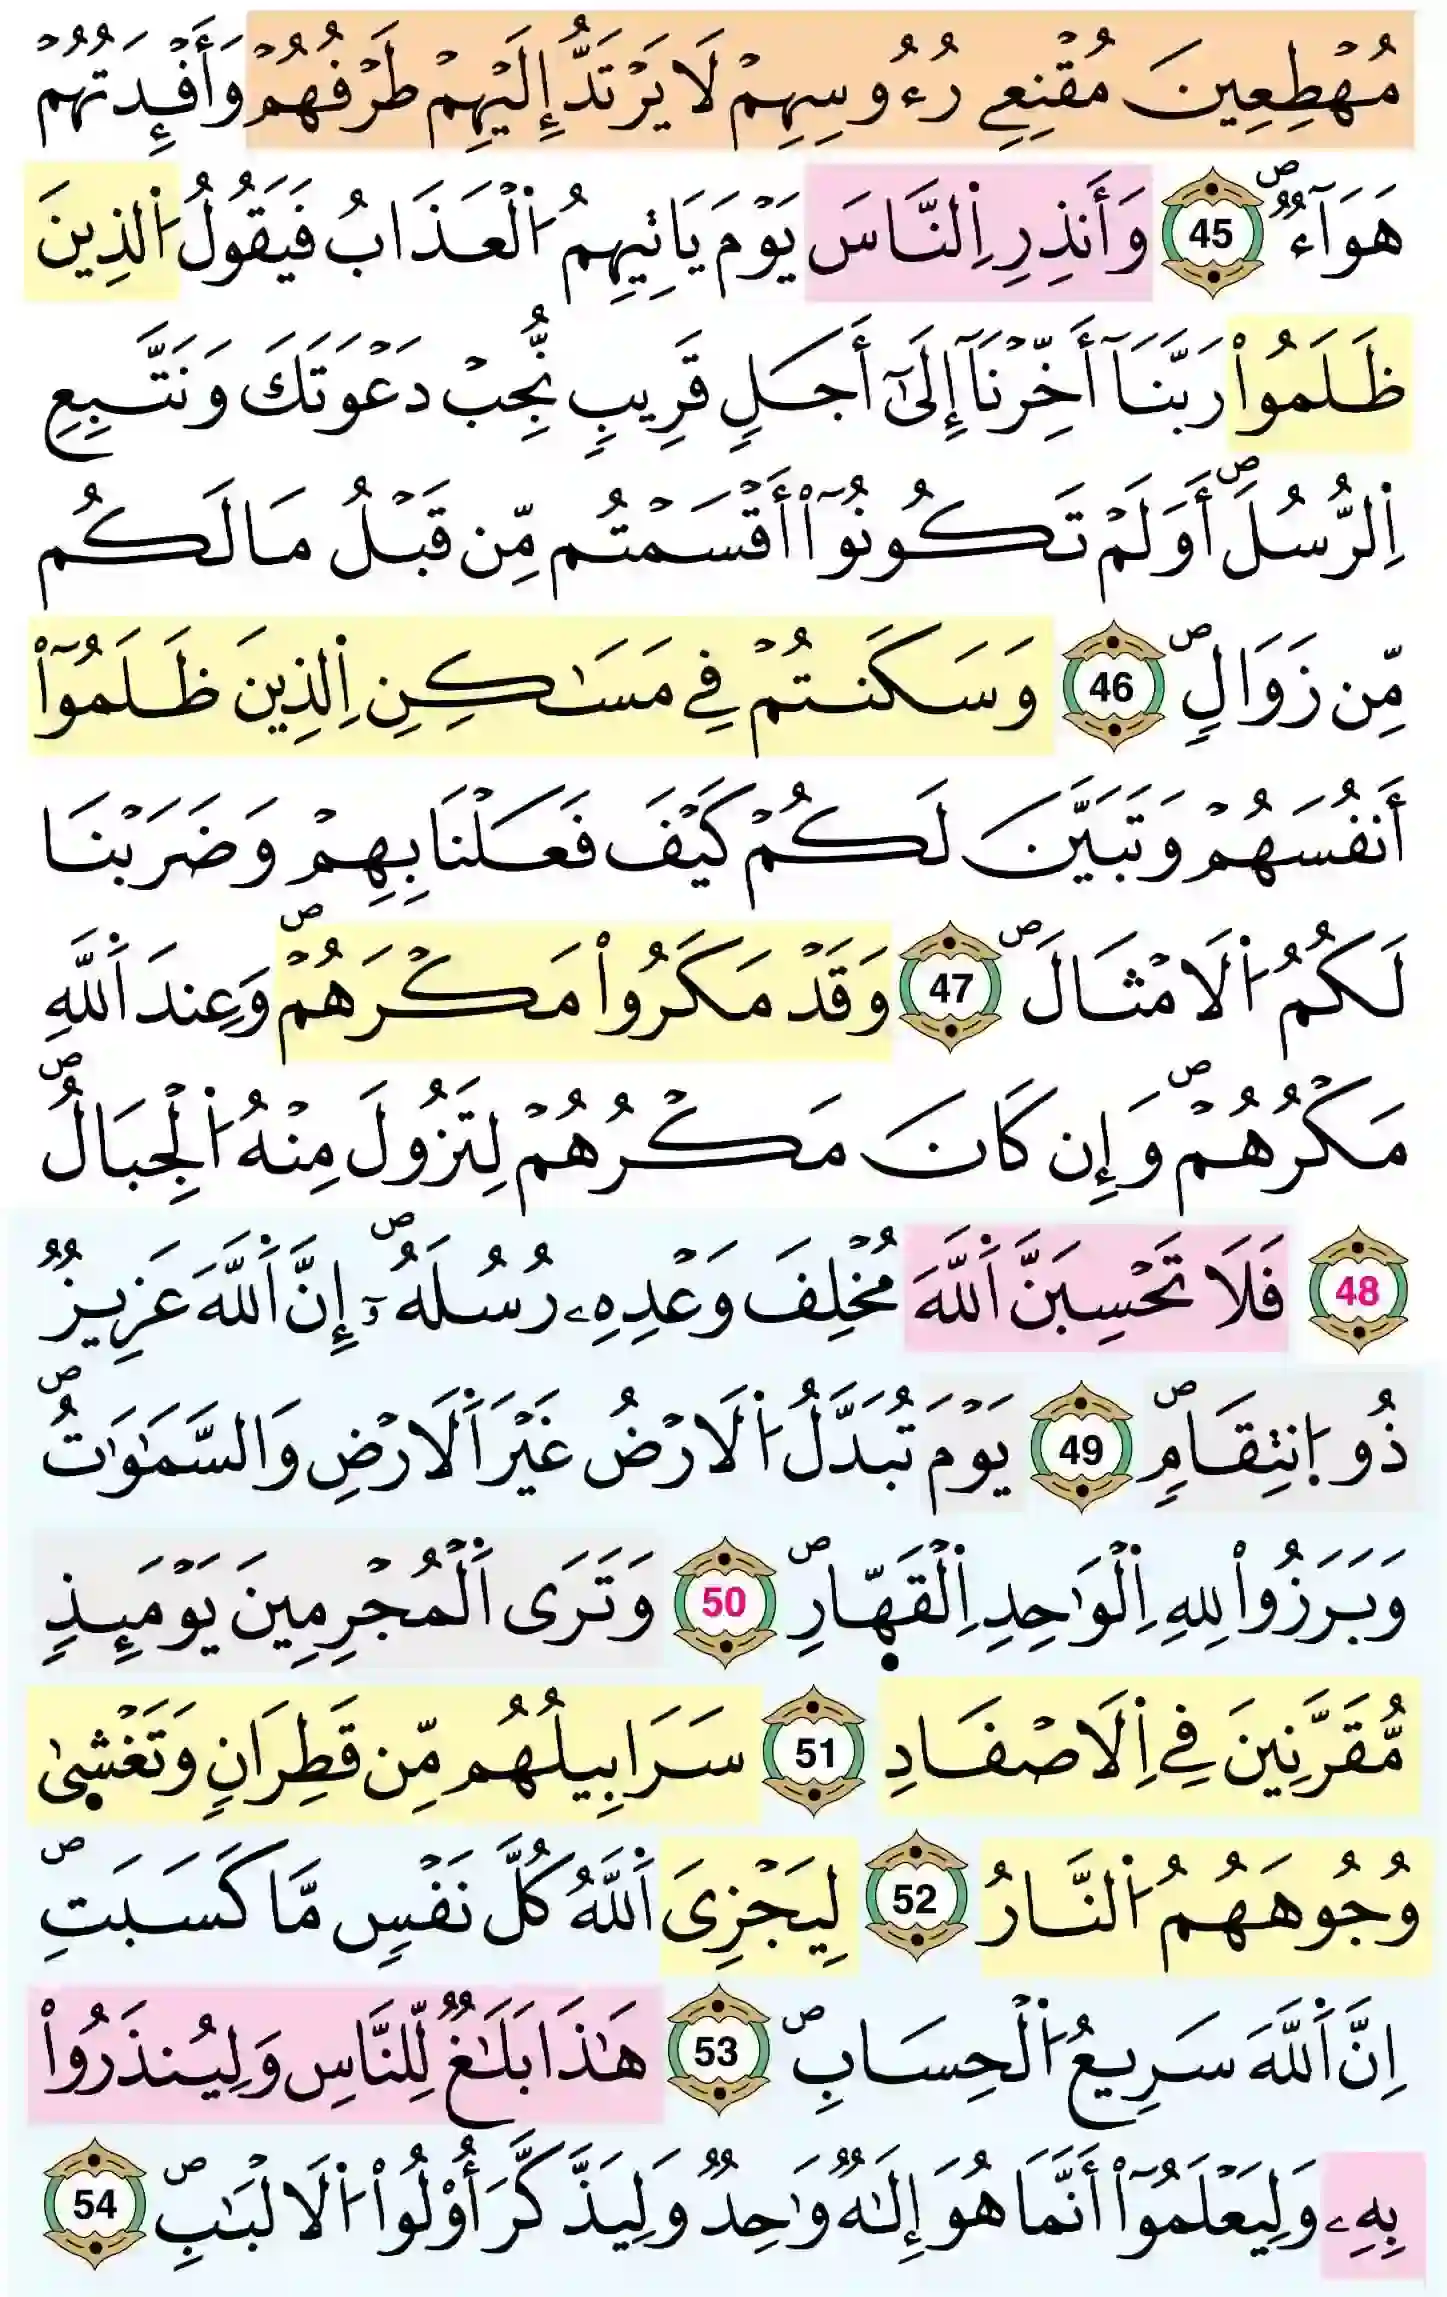 مُهْطِعِينَ مُقْنِعِے رُءُوسِهِمْ لَا يَرْتَدُّ إِلَيْهِمْ طَرْفُهُمْ وَأَفْـِٕدَتُهُمْ
هَوَآءٌ ۖ 45 وَأَنذِرِ اِ۬لنَّاسَ يَوْمَ يَاتِيهِمُ اُ۬لْعَذَابُ فَيَقُولُ اُ۬لذِينَ
ظَلَمُواْ رَبَّنَآ أَخِّرْنَآ إِلَىٰٓ أَجَلٍ قَرِيبٍ نُّجِبْ دَعْوَتَكَ وَنَتَّبِعِ
اِ۬لرُّسُلَ ۖ أَوَلَمْ تَكُونُوٓاْ أَقْسَمْتُم مِّن قَبْلُ مَا لَكُم
مِّن زَوَالٍ ۖ 46 وَسَكَنتُمْ فِے مَسَٰكِنِ اِ۬لذِينَ ظَلَمُوٓاْ
أَنفُسَهُمْ وَتَبَيَّنَ لَكُمْ كَيْفَ فَعَلْنَا بِهِمْ وَضَرَبْنَا
لَكُمُ اُ۬لَامْثَالَ ۖ 47 وَقَدْ مَكَرُواْ مَكْرَهُمْ ۖ وَعِندَ اَ۬للَّهِ
مَكْرُهُمْ ۖ وَإِن كَانَ مَكْرُهُمْ لِتَزُولَ مِنْهُ اُ۬لْجِبَالُ ۖ
48 فَلَا تَحْسِبَنَّ اَ۬للَّهَ مُخْلِفَ وَعْدِهِۦ رُسُلَهُۥٓ ۖ إِنَّ اَ۬للَّهَ عَزِيزٌ
ذُو اُ۪نتِقَامٍ ۖ 49 يَوْمَ تُبَدَّلُ اُ۬لَارْضُ غَيْرَ اَ۬لَارْضِ وَالسَّمَٰوَٰتُ ۖ
وَبَرَزُواْ لِلهِ اِ۬لْوَٰحِدِ اِ۬لْقَهّ۪ارِ ۖ 50 وَتَرَى اَ۬لْمُجْرِمِينَ يَوْمَئِذٍ
مُّقَرَّنِينَ فِے اِ۬لَاصْفَادِ 51 سَرَابِيلُهُم مِّن قَطِرَانٍ وَتَغْش۪ىٰ
وُجُوهَهُمُ اُ۬لنَّارُ 52 لِيَجْزِىَ اَ۬للَّهُ كُلَّ نَفْسٍ مَّا كَسَبَتِ ۖ
اِنَّ اَ۬للَّهَ سَرِيعُ اُ۬لْحِسَابِ ۖ 53 هَٰذَا بَلَٰغٌ لِّلنَّاسِ وَلِيُنذَرُواْ
بِهِۦ وَلِيَعْلَمُوٓاْ أَنَّمَا هُوَ إِلَٰهٌ وَٰحِدٌ وَلِيَذَّكَّرَ أُوْلُواْ اُ۬لَالْبَٰبِ ۖ 54